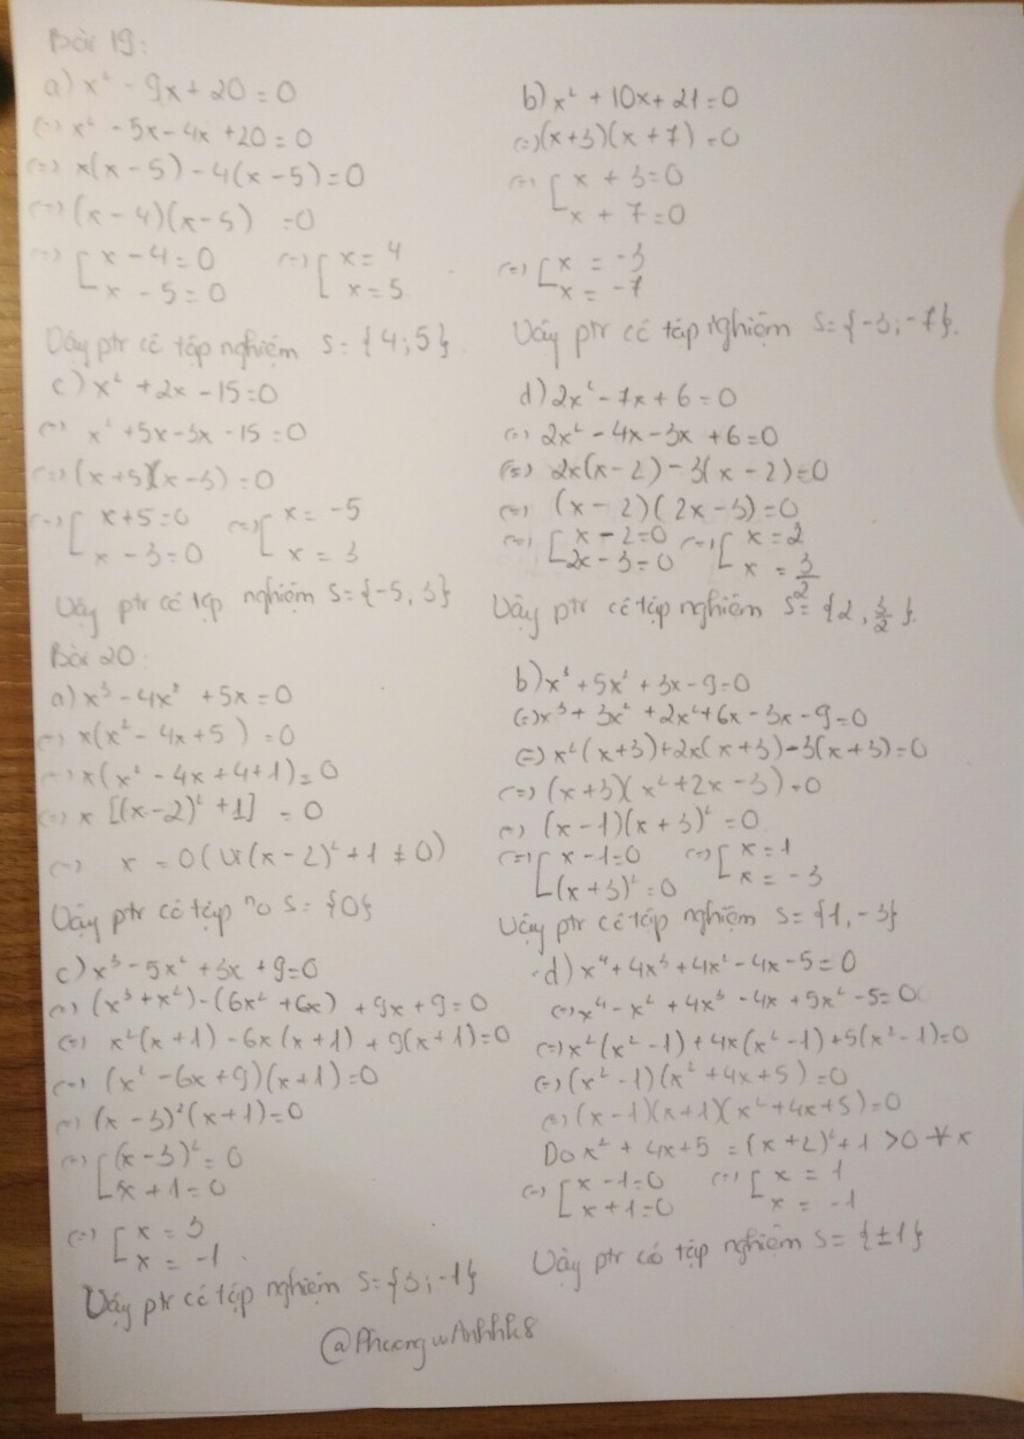 Bài 19:
a) x² - 9x + 20 = 0
(=) x² - 5x - 4x + 20 = 0
(=) x(x - 5) - 4(x - 5) = 0
(=) (x - 4)(x - 5) = 0
(=) [ x - 4 = 0 (=) [ x = 4
x - 5 = 0 x = 5
Vậy ptr có tập nghiệm S = {4; 5}
b) x² + 10x + 21 = 0
(=) (x + 3)(x + 7) = 0
(=) [ x + 3 = 0
x + 7 = 0
(=) [ x = -3
x = -7
Vậy ptr có tập nghiệm S = {-3; -7}.
c) x² + 2x - 15 = 0
(=) x² + 5x - 3x - 15 = 0
(=) (x + 5)(x - 3) = 0
(=) [ x + 5 = 0 (=) [ x = -5
x - 3 = 0 x = 3
Vậy ptr có tập nghiệm S = {-5, 3}
d) 2x² - 7x + 6 = 0
(=) 2x² - 4x - 3x + 6 = 0
(=) 2x(x - 2) - 3(x - 2) = 0
(=) (x - 2)(2x - 3) = 0
(=) [ x - 2 = 0 (=) [ x = 2
2x - 3 = 0 x = 3/2
Vậy ptr có tập nghiệm S = {2, 3/2}.
Bài 20:
a) x³ - 4x² + 5x = 0
(=) x(x² - 4x + 5) = 0
(=) x(x² - 4x + 4 + 1) = 0
(=) x [(x - 2)² + 1] = 0
(=) x = 0 (Vì (x - 2)² + 1 ≠ 0)
Vậy ptr có tập no S = {0}
b) x³ + 5x² + 3x - 9 = 0
(=) x³ + 3x² + 2x² + 6x - 3x - 9 = 0
(=) x²(x + 3) + 2x(x + 3) - 3(x + 3) = 0
(=) (x + 3)(x² + 2x - 3) = 0
(=) (x - 1)(x + 3)² = 0
(=) [ x - 1 = 0 (=) [ x = 1
(x + 3)² = 0 x = -3
Vậy ptr có tập nghiệm S = {1, -3}
c) x³ - 5x² + 3x + 9 = 0
(=) (x³ + x²) - (6x² + 6x) + 9x + 9 = 0
(=) x²(x + 1) - 6x(x + 1) + 9(x + 1) = 0
(=) (x² - 6x + 9)(x + 1) = 0
(=) (x - 3)²(x + 1) = 0
(=) [ (x - 3)² = 0
x + 1 = 0
(=) [ x = 3
x = -1
Vậy ptr có tập nghiệm S = {3; -1}
d) x⁴ + 4x³ + 4x² - 4x - 5 = 0
(=) x⁴ - x² + 4x³ - 4x + 5x² - 5 = 0
(=) x²(x² - 1) + 4x(x² - 1) + 5(x² - 1) = 0
(=) (x² - 1)(x² + 4x + 5) = 0
(=) (x - 1)(x + 1)(x² + 4x + 5) = 0
Do x² + 4x + 5 = (x + 2)² + 1 > 0 ∀ x
(=) [ x - 1 = 0 (=) [ x = 1
x + 1 = 0 x = -1
Vậy ptr có tập nghiệm S = {±1}